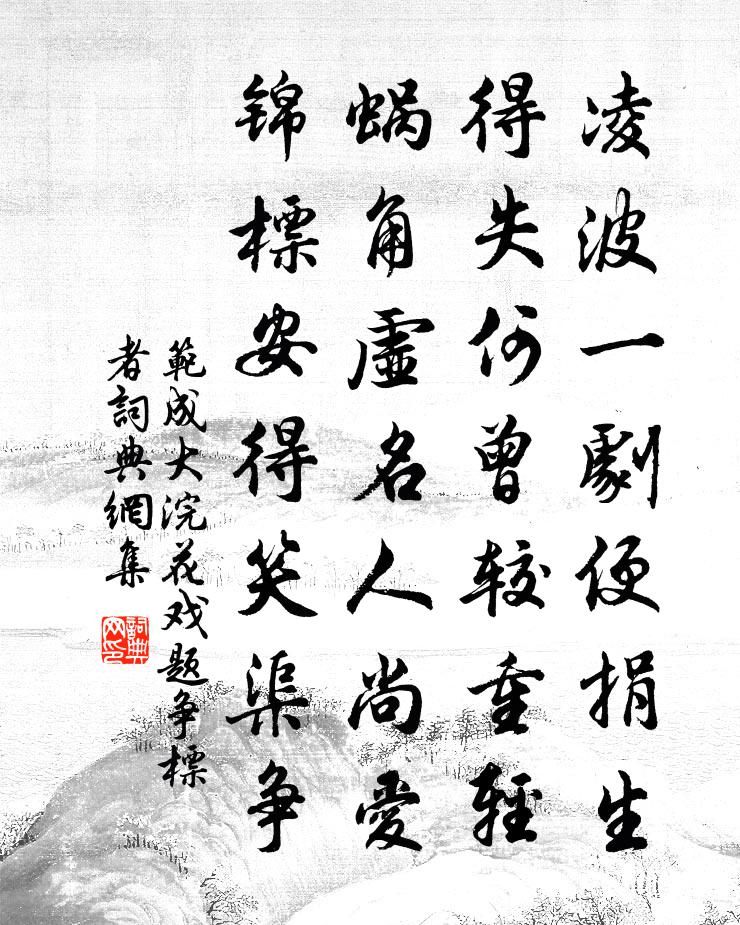 凌波一劇便捐生
得失何曾較重輕
蝸角虛名人尚愛
錦標安得笑渠爭
範成大浣花戏题争標
者詞典網集
詞典网印